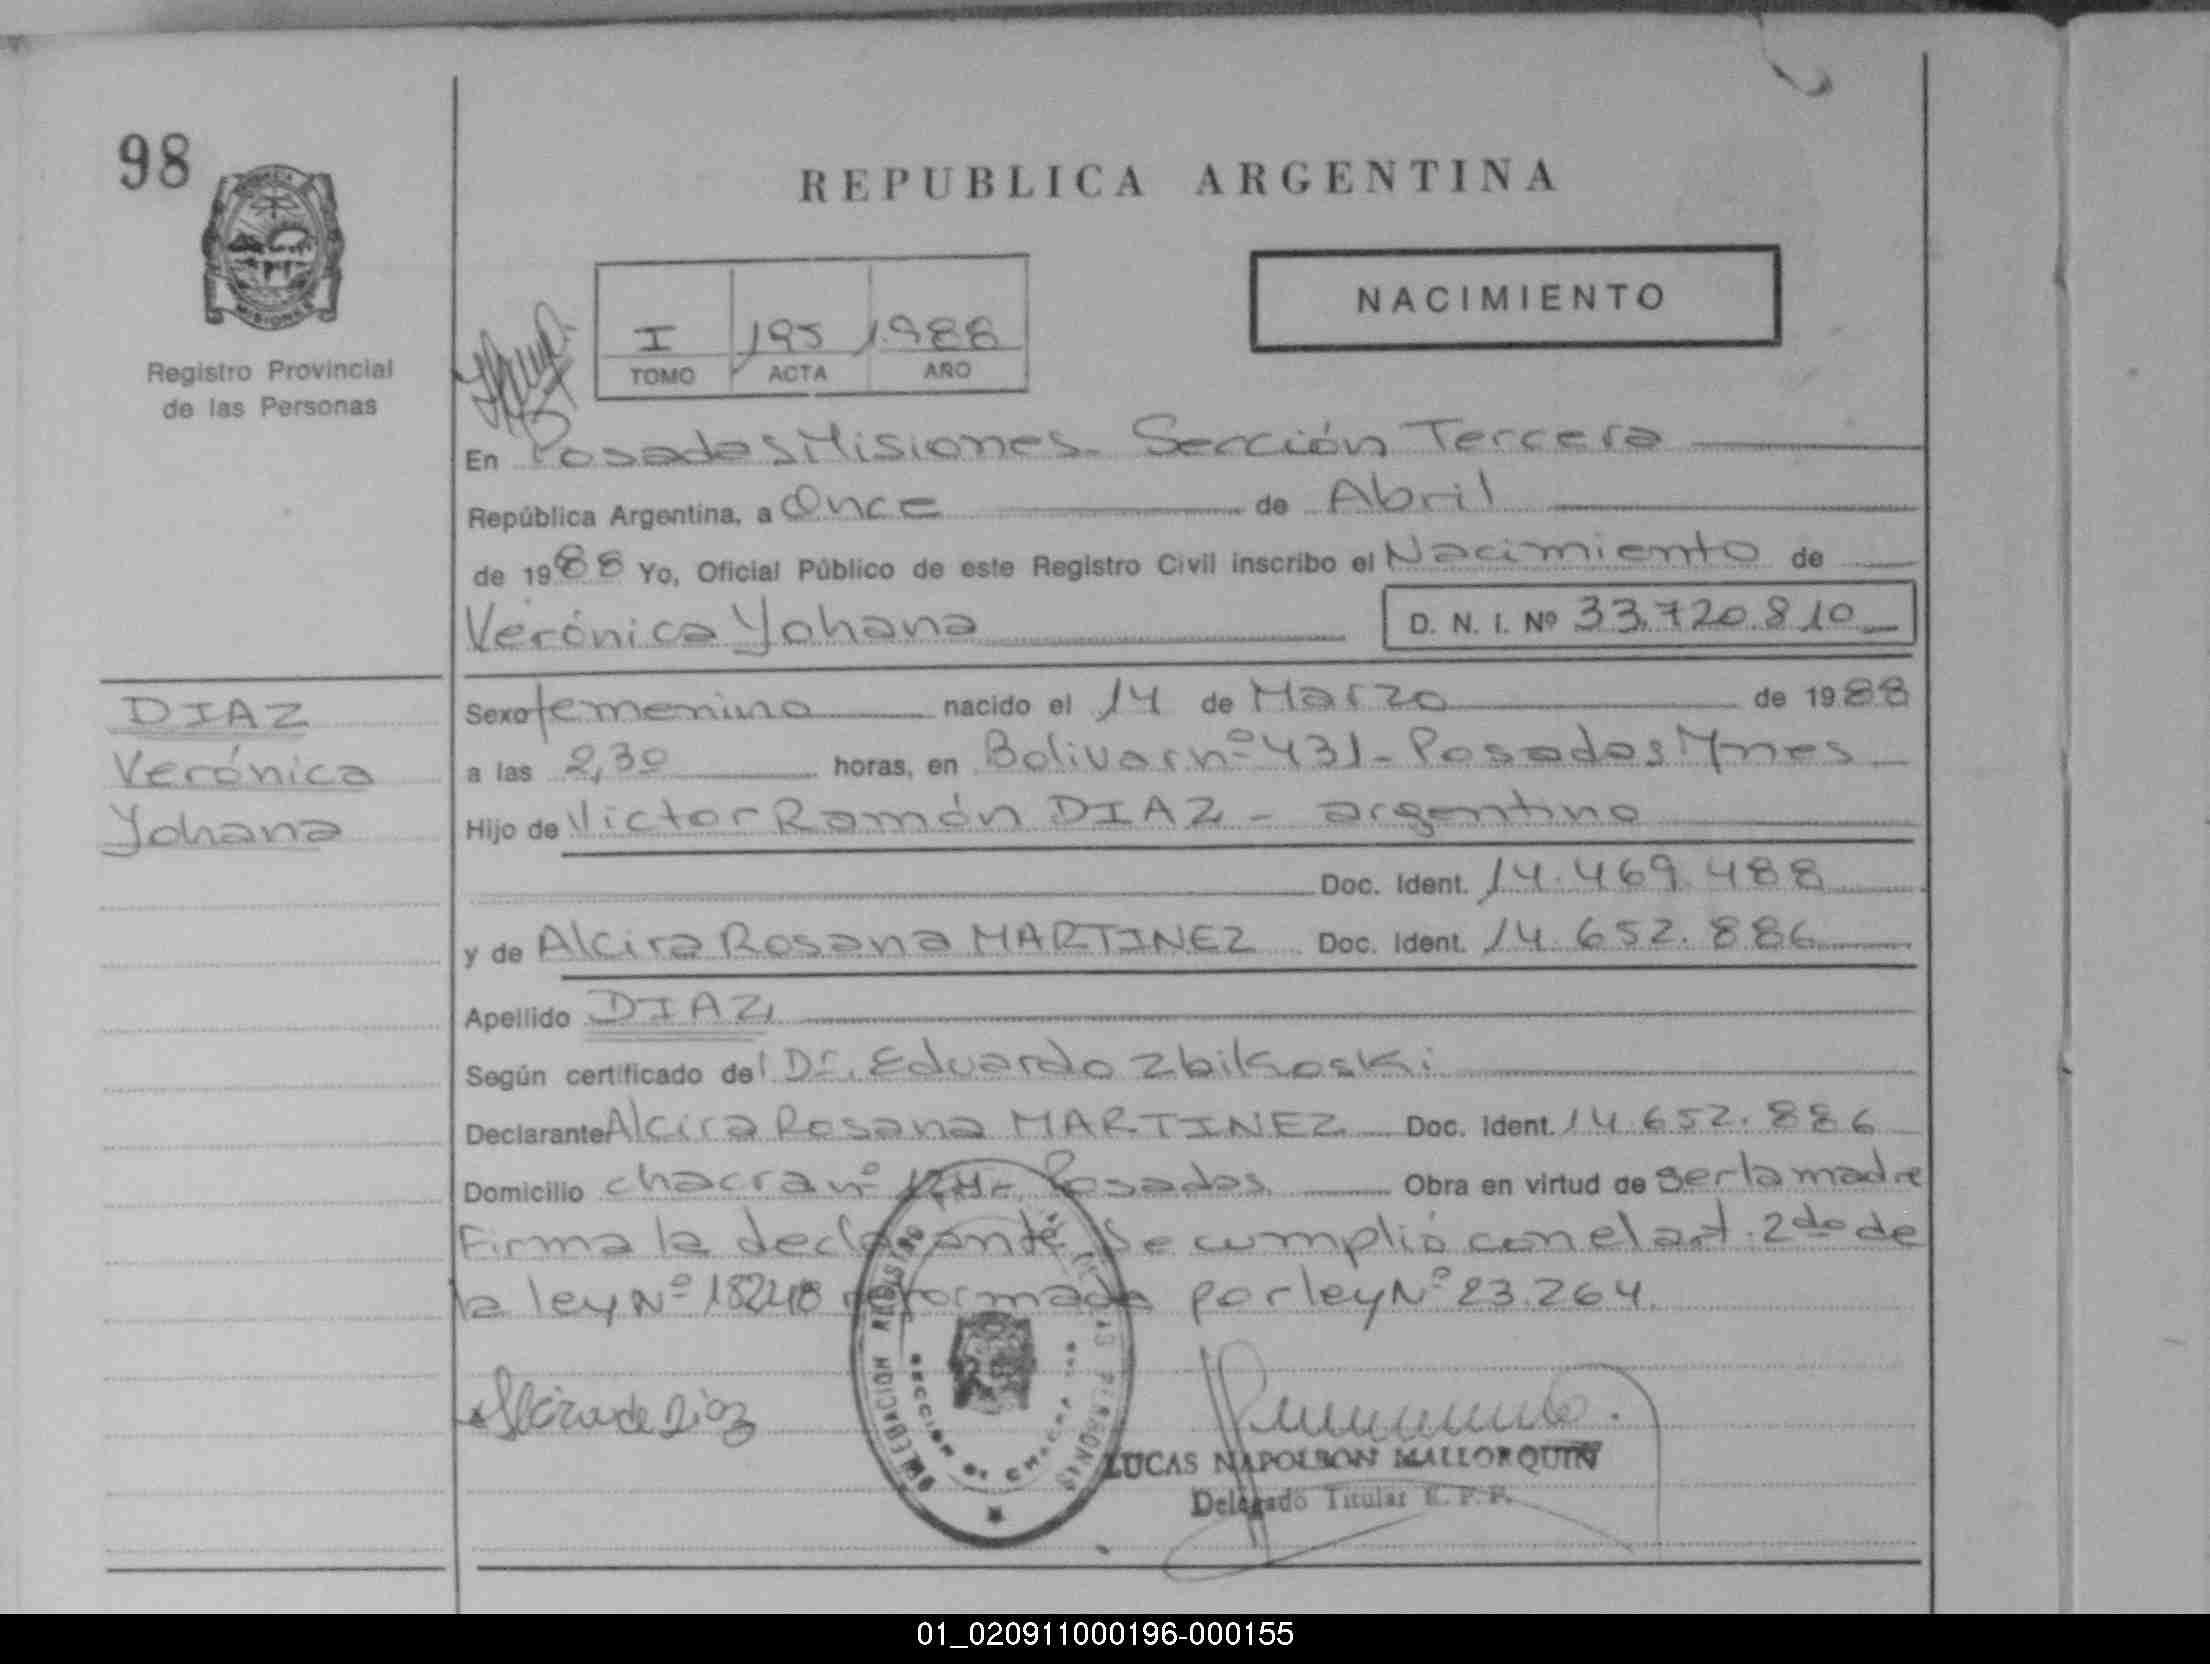 98
REPUBLICA ARGENTINA
MISIONES
Registro Provincial
de las Personas
I 195 1.988
TOMO ACTA AÑO
NACIMIENTO
En Posadas Misiones. Sección Tercera
República Argentina, a Once de Abril
de 1988 Yo, Oficial Público de este Registro Civil inscribo el Nacimiento de
Verónica Yohana
D. N. I. Nº 33.720.810
DIAZ
Verónica
Yohana
Sexo femenino nacido el 14 de Marzo de 1988
a las 2,30 horas, en Bolivar nº 431 - Posados Mnes
Hijo de Victor Ramón DIAZ - argentino
Doc. Ident. 14.469.488
y de Alcira Rosana MARTINEZ Doc. Ident. 14.652.886
Apellido DIAZ
Según certificado del Dr. Eduardo Zbikoski
Declarante Alcira Rosana MARTINEZ Doc. Ident. 14.652.886
Domicilio chacra nº Posadas Obra en virtud de ser la madre
Firma la declarante. Se cumplió con el art. 2do de
la ley Nº 18248 reformada por ley Nº 23.264.
Alcira de Diaz
LUCAS NAPOLEON MALLORQUIN
Delegado Titular R. P. P.
01_020911000196-000155